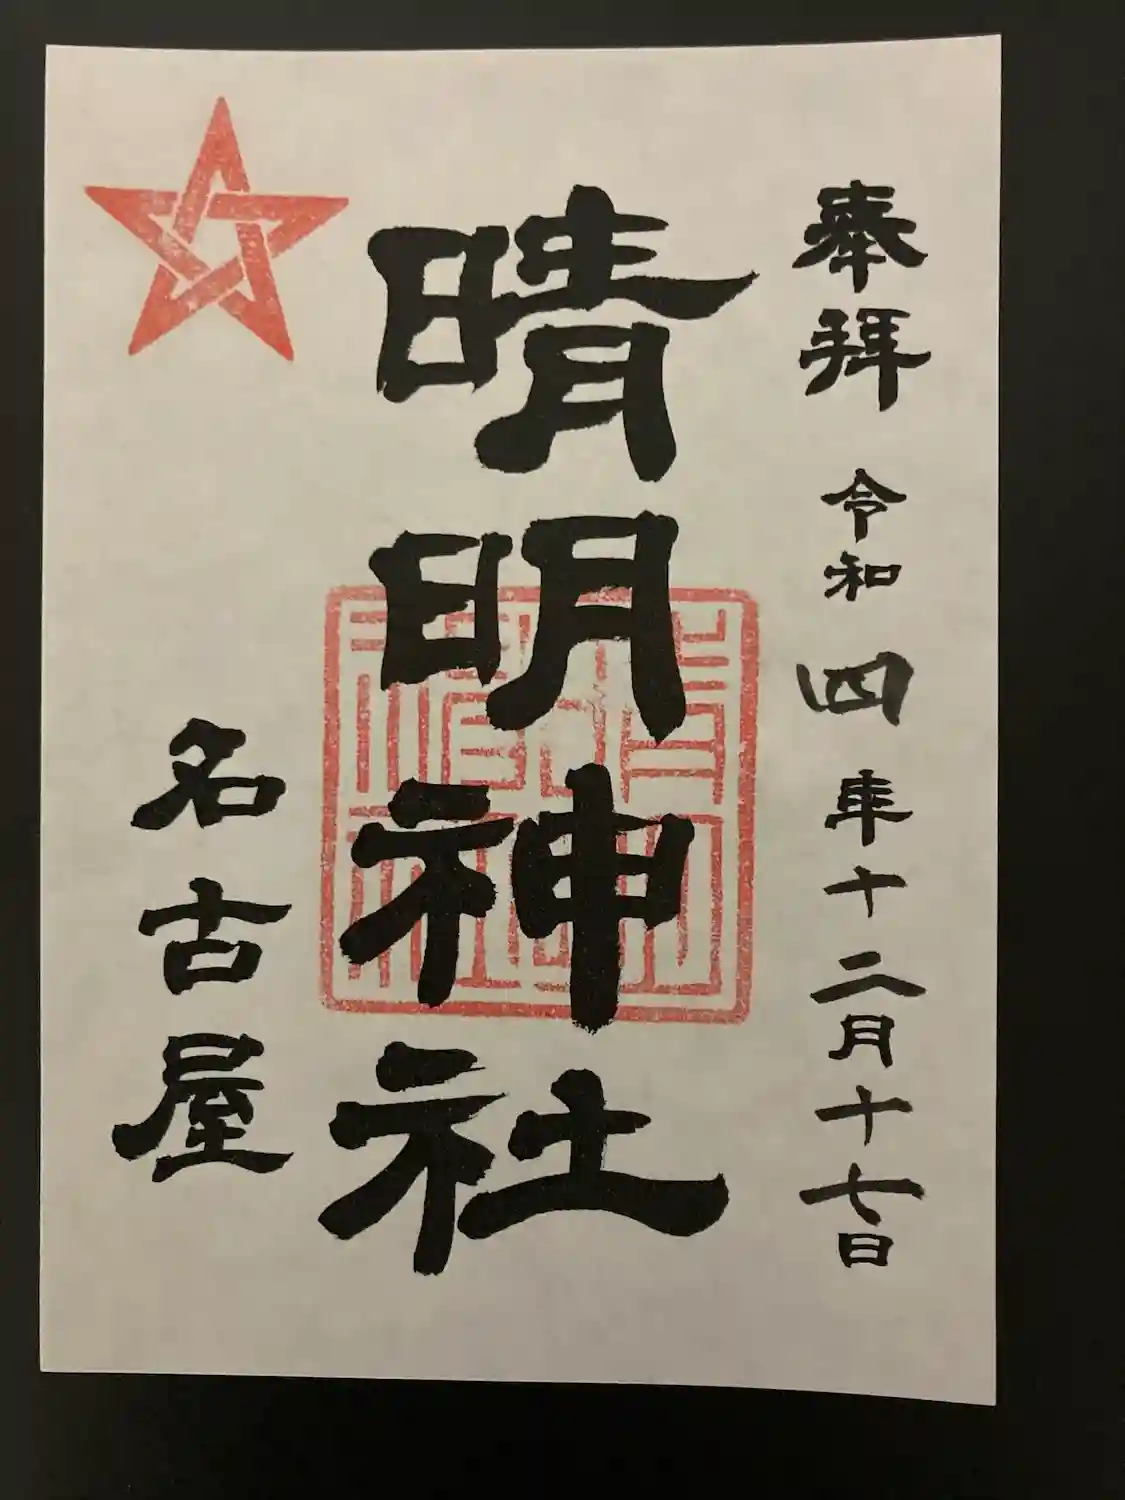 奉拝 令和四年十二月十七日
晴明神社
名古屋